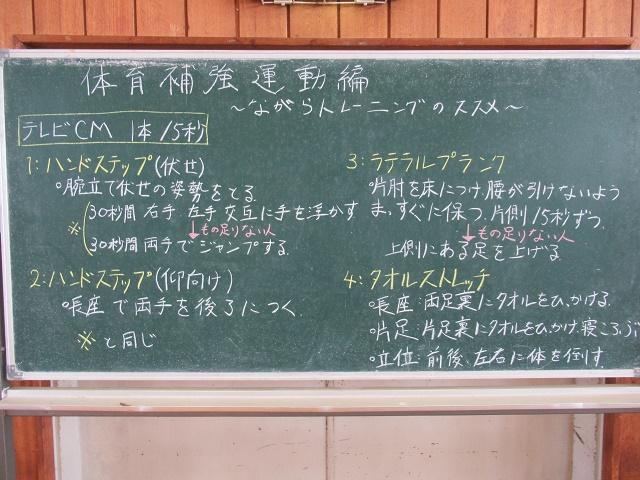 体育補強運動編
～ながらトレーニングのススメ～
テレビCM 1本15秒
1:ハンドステップ(伏せ)
○腕立て伏せの姿勢をとる
※
30秒間 右手 左手 交互に手を浮かす
↓もの足りない人
30秒間 両手でジャンプする.
2:ハンドステップ(仰向け)
○長座で両手を後ろにつく.
※ と同じ
3:ラテラルプランク
○片肘を床につけ,腰が引けないよう
まっすぐに保つ.片側15秒ずつ.
↓もの足りない人
上側にある足を上げる
4:タオルストレッチ
○長座:両足裏にタオルをひっかける.
○片足:片足裏にタオルをひっかけ,寝ころぶ
○立位:前後、左右に体を倒す.